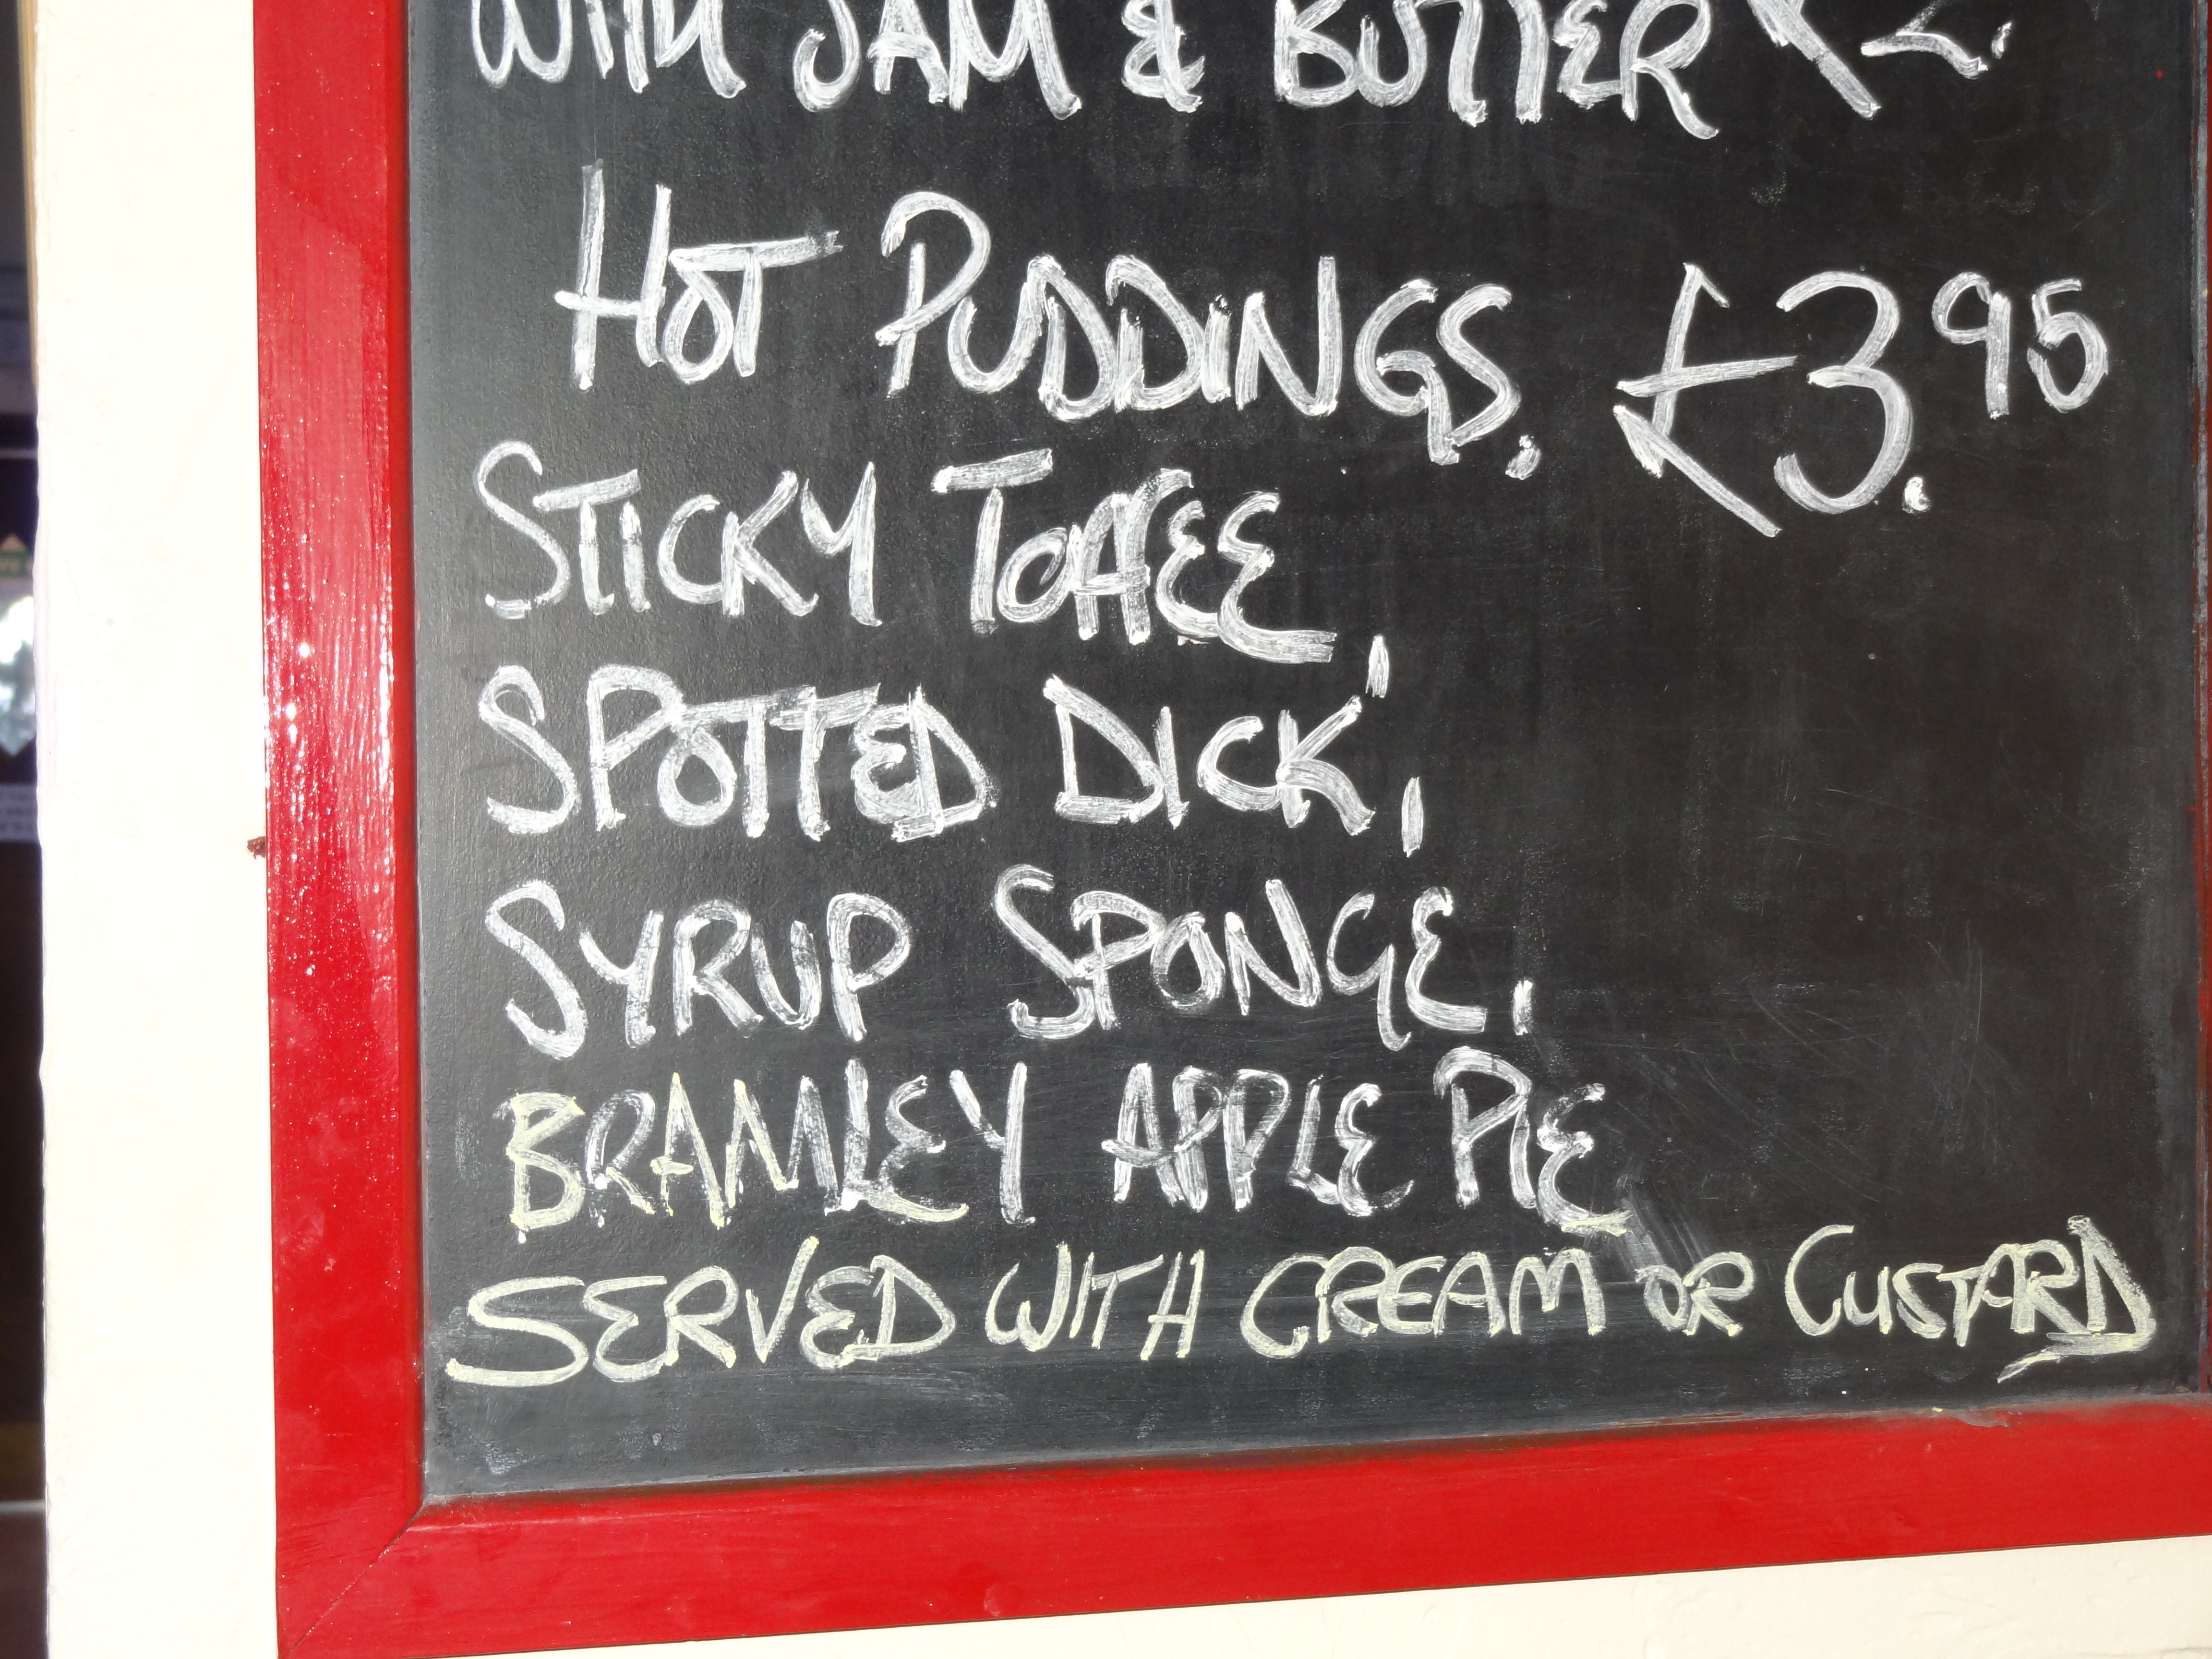 WITH JAM & BUTTER £2.
HOT PUDDINGS. £3.95
STICKY TOFFEE,
SPOTTED DICK,
SYRUP SPONGE,
BRAMLEY APPLE PIE
SERVED WITH CREAM OR CUSTARD